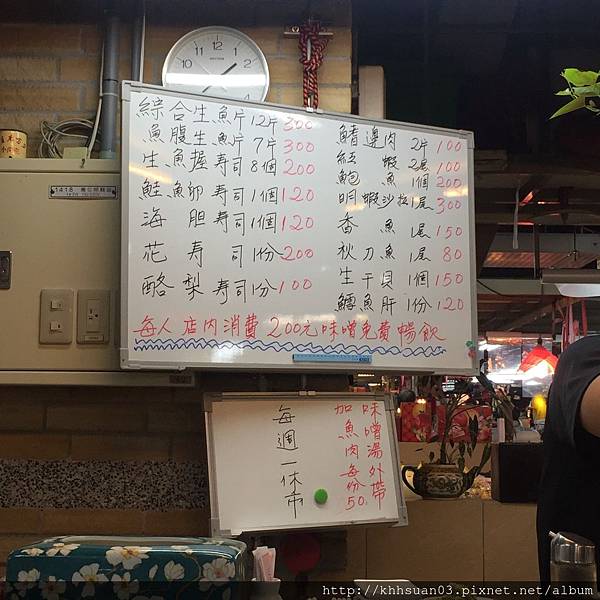 RHYTHM
綜合生魚片12片300
魚腹生魚片7片300
生魚握壽司8個200
鮭魚卵壽司1個120
海胆壽司1個120
花壽司1份200
酪梨壽司1份100
鰭邊肉2片100
紅蝦2尾100
鮑魚1個200
明蝦沙拉1尾300
香魚1尾150
秋刀魚1尾80
生干貝1個150
鱈魚肝1份120
每人店內消費200元味噌免費暢飲
味噌湯外帶
加魚肉每份50.
每週一休市
1418
http://khhsuan03.pixnet.net/album